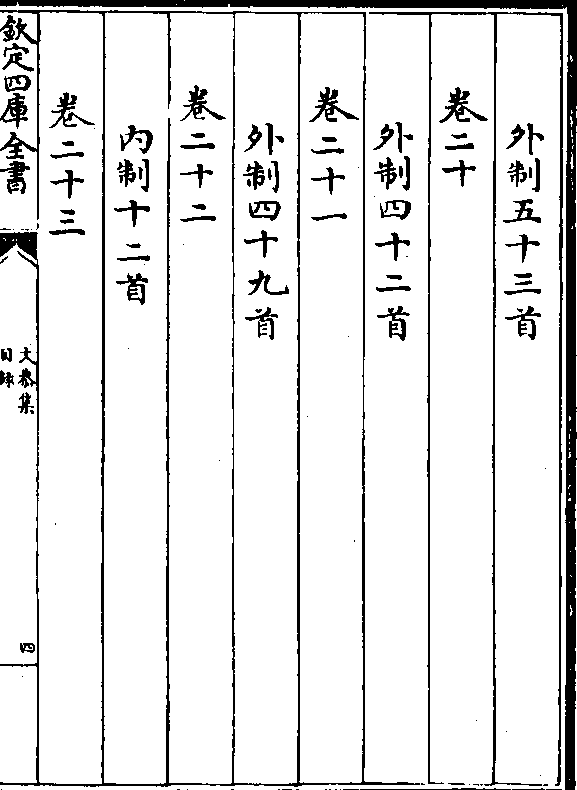 外制五十三首
卷二十
外制四十二首
卷二十一
外制四十九首
卷二十二
内制十二首
卷二十三
欽定四庫全書
文恭集
目録
四